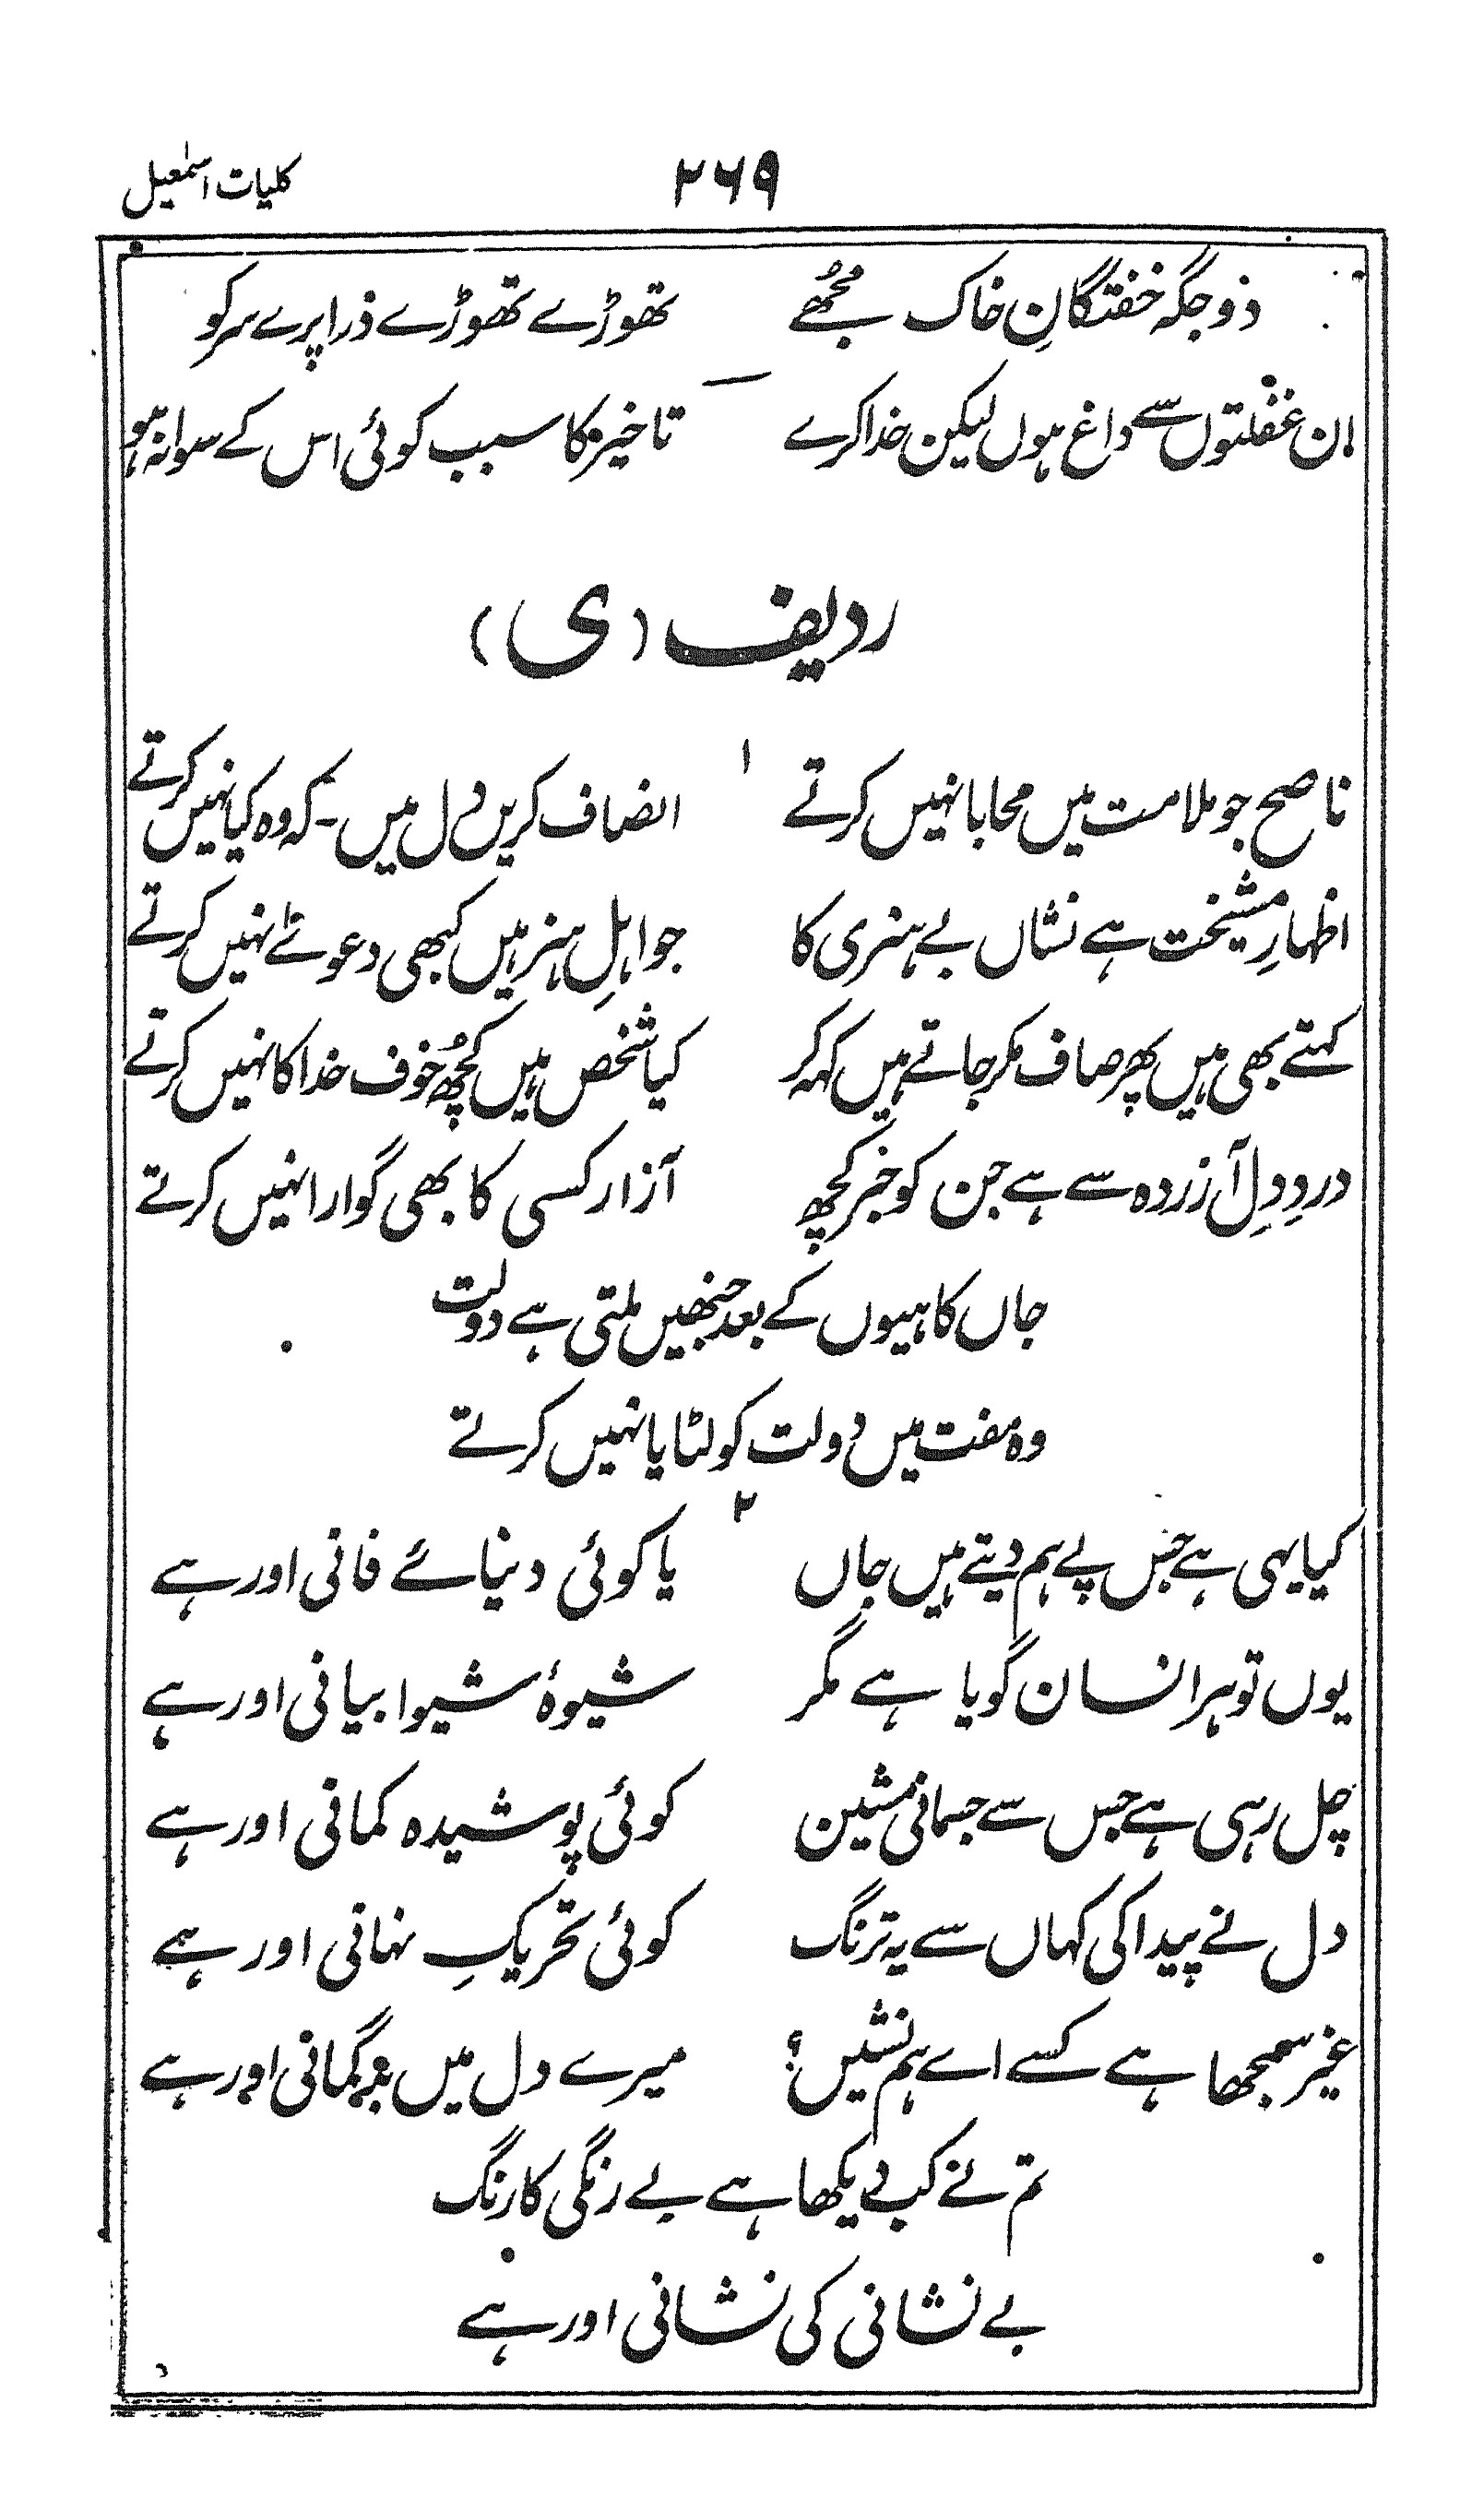 کلیات اسمٰعیل ۲۶۹
دو جگہ خفتگانِ خاک مجُھے تھوڑے تھوڑے ذرا پرے سرکو
ان غفلتوں سے داغ ہوں لیکن خدا کرے تاخیر کا سبب کوئی اس کے سوا نہ ہو
ردیف (ی)
۱
ناصح جو ملامت میں محابا نہیں کرتے انصاف کریں دل میں ۔ کہ وہ کیا نہیں کرتے
اظہارِ مشیخت ہے نشاں بے ہنری کا جو اہلِ ہنر ہیں کبھی دعوےٰ نہیں کرتے
کہتے بھی ہیں پھر صاف مکر جاتے ہیں کہہ کر کیا شخص ہیں کچُھ خوف خدا کا نہیں کرتے
دردِ دِلِ آزردہ سے ہے جن کو خبر کچھ آزار کسی کا بھی گوارا نہیں کرتے
جاں کاہیوں کے بعد جنھیں ملتی ہے دولت
وہ مفت میں دولت کو لٹایا نہیں کرتے
۲
کیا یہی ہے جس پے ہم دیتے ہیں جاں یا کوئی دنیائے فانی اور ہے
یوں تو ہر انسان گویا ہے مگر شیوۂ شیوا بیانی اور ہے
چل رہی ہے جس سے جسمانی مشین کوئی پوشیدہ کمانی اور ہے
دل نے پیدا کی کہاں سے یہ ترنگ کوئی تحریکِ نہانی اور ہے
غیر سمجھا ہے کسے اے ہم نشیں؟ میرے دل میں بدگمانی اور ہے
تم نے کب دیکھا ہے بے رنگی کا رنگ
بے نشانی کی نشانی اور ہے